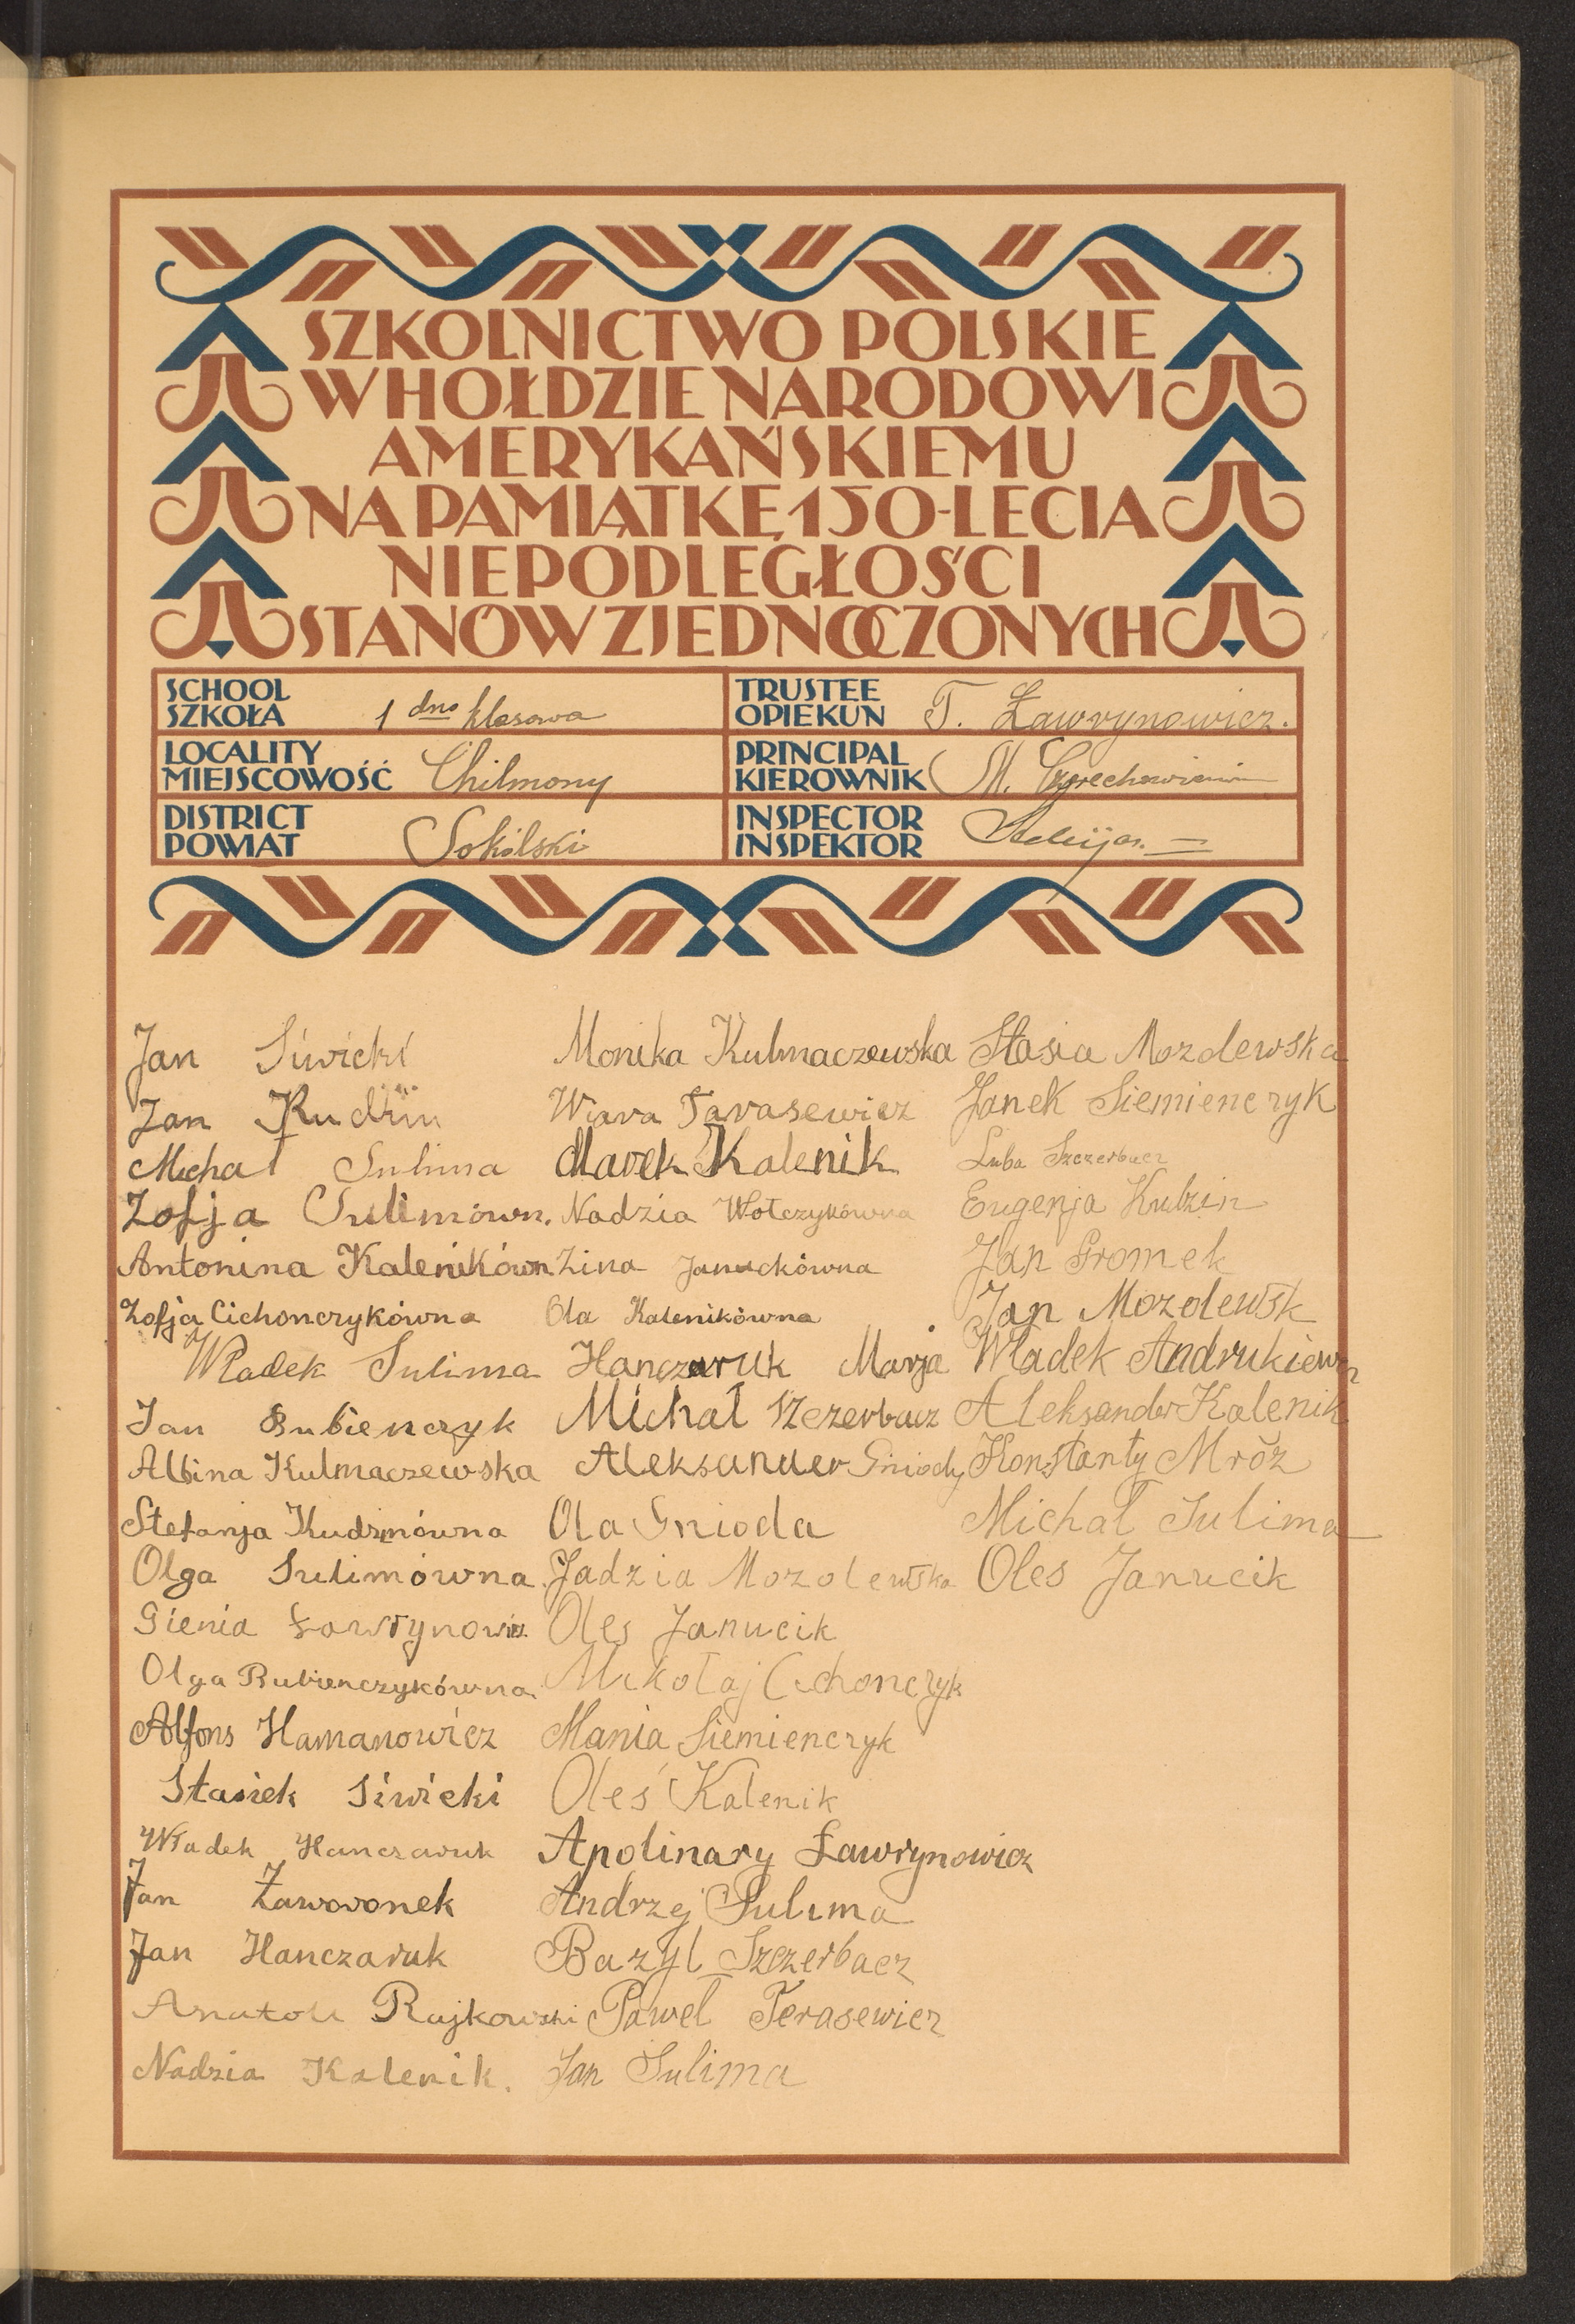 SZKOLNICTWO POLSKIE
W HOŁDZIE NARODOWI
AMERYKAŃSKIEMU
NA PAMIĄTKĘ 150-LECIA
NIEPODLEGŁOŚCI
STANÓW ZJEDNOCZONYCH
SCHOOL
SZKOŁA 1 dno klasowa
TRUSTEE
OPIEKUN T. Ławrynowicz.
LOCALITY
MIEJSCOWOŚĆ Chilmony
PRINCIPAL
KIEROWNIK M.
DISTRICT
POWIAT Sokólski
INSPECTOR
INSPEKTOR
Jan Siwicki
Jan Kudzin
Michał Sulima
Zofja Sulimówn.
Antonina Kalenikówn
Zofja Cichonczykówna
Władek Sulima
Jan Bubienczyk
Albina Kulmaczewska
Stefanja Kudzinówna
Olga Sulimówna
Gienia Ławrynowicz
Olga Bubienczykówna
Alfons Hamanowicz
Stasiek Siwicki
Władek Hanczaruk
Jan Zaworonek
Jan Hanczaruk
Anatoli Rajkowski
Nadzia Kalenik.
Monika Kulmaczewska
Wiara Tarasewicz
Marek Kalenik
Nadzia Wołczykówna
Zina Januckówna
Ola Kalenikówna
Hanczaruk Marja
Michał Szczerbacz
Aleksander Gniody
Ola Gnioda
Jadzia Mozolewska
Oles Janucik
Mikołaj Cichonczyk
Mania Siemienczyk
Oleś Kalenik
Apolinary Ławrynowicz
Andrzej Sulima
Bazyl Szczerbacz
Paweł Terasewicz
Jan Sulima
Stasia Mozdewska
Janek Siemienczyk
Luba Szczerbacz
Eugenja Kudzin
Jan Gromek
Jan Mozolewsk
Władek Andrukiewicz
Aleksander Kalenik
Konstanty Mróz
Michał Sulima
Oles Janucik